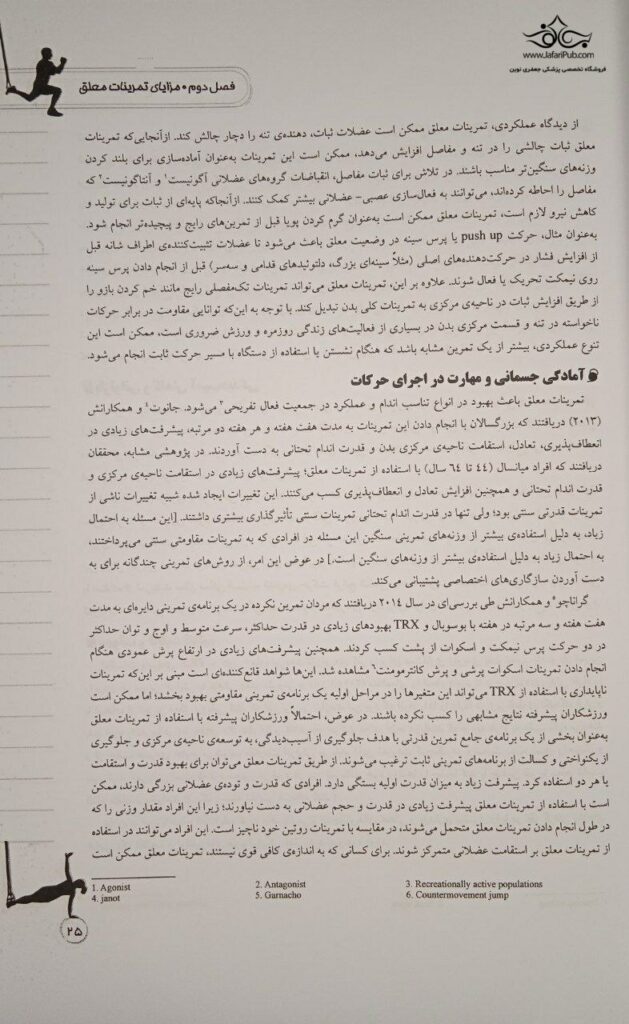 www.JafariPub.com
فروشگاه تخصصی پزشکی جعفری نوین
فصل دوم • مزایای تمرینات معلق
از دیدگاه عملکردی، تمرینات معلق ممکن است عضلات ثبات، دهنده‌ی تنه را دچار چالش کند. ازآنجایی‌که تمرینات
معلق ثبات چالشی را در تنه و مفاصل افزایش می‌دهد، ممکن است این تمرینات به‌عنوان آماده‌سازی برای بلند کردن
وزنه‌های سنگین‌تر مناسب باشند. در تلاش برای ثبات مفاصل، انقباضات گروه‌های عضلانی آگونیست۱ و آنتاگونیست۲ که
مفاصل را احاطه کرده‌اند، می‌توانند به فعال‌سازی عصبی- عضلانی بیشتر کمک کنند. ازآنجاکه پایه‌ای از ثبات برای تولید و
کاهش نیرو لازم است، تمرینات معلق ممکن است به‌عنوان گرم کردن پویا قبل از تمرین‌های رایج و پیچیده‌تر انجام شود.
به‌عنوان مثال، حرکت push up یا پرس سینه در وضعیت معلق باعث می‌شود تا عضلات تثبیت‌کننده‌ی اطراف شانه قبل
از افزایش فشار در حرکت‌دهنده‌های اصلی (مثلاً سینه‌ای بزرگ، دلتوئیدهای قدامی و سه‌سر) قبل از انجام دادن پرس سینه
روی نیمکت تحریک یا فعال شوند. علاوه بر این، تمرینات معلق می‌تواند تمرینات تک‌مفصلی رایج مانند خم کردن بازو را
از طریق افزایش ثبات در ناحیه‌ی مرکزی به تمرینات کلی بدن تبدیل کند. با توجه به این‌که توانایی مقاومت در برابر حرکات
ناخواسته در تنه و قسمت مرکزی بدن در بسیاری از فعالیت‌های زندگی روزمره و ورزش ضروری است، ممکن است این
تنوع عملکردی، بیشتر از یک تمرین مشابه باشد که هنگام نشستن یا استفاده از دستگاه با مسیر حرکت ثابت انجام می‌شود.
آمادگی جسمانی و مهارت در اجرای حرکات
تمرینات معلق باعث بهبود در انواع تناسب اندام و عملکرد در جمعیت فعال تفریحی۳ می‌شود. جانوت۴ و همکارانش
(۲۰۱۳) دریافتند که بزرگسالان با انجام دادن این تمرینات به مدت هفت هفته و هر هفته دو مرتبه، پیشرفت‌های زیادی در
انعطاف‌پذیری، تعادل، استقامت ناحیه‌ی مرکزی بدن و قدرت اندام تحتانی به دست آوردند. در پژوهشی مشابه، محققان
دریافتند که افراد میانسال (٤٤ تا ٦٤ سال) با استفاده از تمرینات معلق؛ پیشرفت‌های زیادی در استقامت ناحیه‌ی مرکزی و
قدرت اندام تحتانی و همچنین افزایش تعادل و انعطاف‌پذیری کسب می‌کنند. این تغییرات ایجاد شده شبیه تغییرات ناشی از
تمرینات قدرتی سنتی بود؛ ولی تنها در قدرت اندام تحتانی تمرینات سنتی تأثیرگذاری بیشتری داشتند. [این مسئله به احتمال
زیاد، به دلیل استفاده‌ی بیشتر از وزنه‌های تمرینی سنگین این مسئله در افرادی که به تمرینات مقاومتی سنتی می‌پرداختند،
به احتمال زیاد به دلیل استفاده‌ی بیشتر از وزنه‌های سنگین است.] در عوض این امر، از روش‌های تمرینی چندگانه برای به
دست آوردن سازگاری‌های اختصاصی پشتیبانی می‌کند.
گراناچو۵ و همکارانش طی بررسی‌ای در سال ۲۰۱٤ دریافتند که مردان تمرین نکرده در یک برنامه‌ی تمرینی دایره‌ای به مدت
هفت هفته و سه مرتبه در هفته با بوسوبال و TRX بهبودهای زیادی در قدرت حداکثر، سرعت متوسط و اوج و توان حداکثر
در دو حرکت پرس نیمکت و اسکوات از پشت کسب کردند. همچنین پیشرفت‌های زیادی در ارتفاع پرش عمودی هنگام
انجام دادن تمرینات اسکوات پرشی و پرش کانترمومنت۶ مشاهده شد. این‌ها شواهد قانع‌کننده‌ای است مبنی بر این‌که تمرینات
ناپایداری با استفاده از TRX می‌تواند این متغیرها را در مراحل اولیه یک برنامه‌ی تمرینی مقاومتی بهبود بخشد؛ اما ممکن است
ورزشکاران پیشرفته نتایج مشابهی را کسب نکرده باشند. در عوض، احتمالاً ورزشکاران پیشرفته با استفاده از تمرینات معلق
به‌عنوان بخشی از یک برنامه‌ی جامع تمرین قدرتی با هدف جلوگیری از آسیب‌دیدگی، به توسعه‌ی ناحیه‌ی مرکزی و جلوگیری
از یکنواختی و کسالت از برنامه‌های تمرینی ثابت ترغیب می‌شوند. از طریق تمرینات معلق می‌توان برای بهبود قدرت و استقامت
یا هر دو استفاده کرد. پیشرفت زیاد به میزان قدرت اولیه بستگی دارد. افرادی که قدرت و توده‌ی عضلانی بزرگی دارند، ممکن
است با استفاده از تمرینات معلق پیشرفت زیادی در قدرت و حجم عضلانی به دست نیاورند؛ زیرا این افراد مقدار وزنی را که
در طول انجام دادن تمرینات معلق متحمل می‌شوند، در مقایسه با تمرینات روتین خود ناچیز است. این افراد می‌توانند در استفاده
از تمرینات معلق بر استقامت عضلانی متمرکز شوند. برای کسانی که به اندازه‌ی کافی قوی نیستند، تمرینات معلق ممکن است
1. Agonist 2. Antagonist 3. Recreationally active populations
4. janot 5. Garnacho 6. Countermovement jump
۲۵